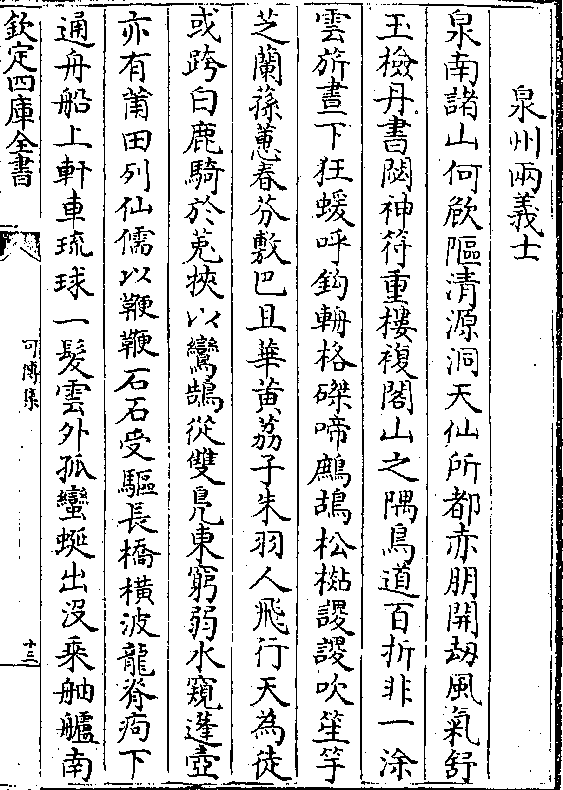 泉州兩義士
泉南諸山何㕁嶇清源洞天仙所都赤朋開刼風氣舒
玉檢丹書閟神符重樓複閣山之隅鳥道百折非一涂
雲旂晝下狂蝯呼鈎輈格磔啼鷓鴣松檆謖謖吹笙竽
芝蘭蓀蕙春芬敷巴且華黃荔子朱羽人飛行天為徒
或跨白鹿騎於菟挾以鸞鵠從雙鳬東窮弱水窺蓬壺
亦有莆田列仙儒以鞭鞭石石受驅長橋橫波龍脊痀下
通舟船上軒車琉球一髮雲外孤蠻蜒出沒乘舳艫南
欽定四庫全書
可傳集
十三